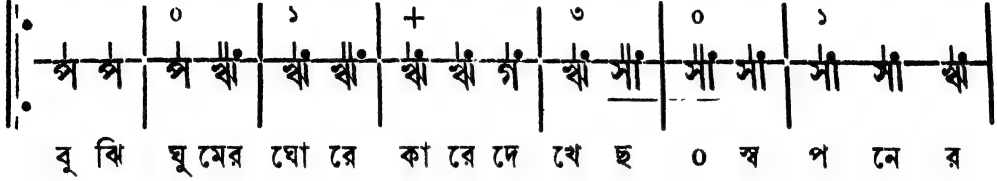 ০ ১ + ৩ ০ ১
প প প ঋ ঋ ঋ ঋ ঋ র্গ ঋ র্সা র্সা র্সা র্সা র্সা ঋ
বু ঝি ঘু মের ঘো রে কা রে দে খে ছ ০ স্ব প নে র